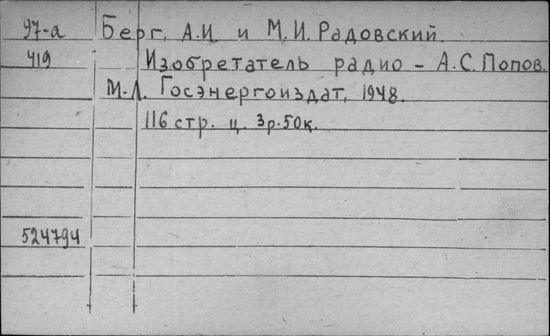 97-а Берг, А.И. и М.И. Радовский.
419 Изобретатель радио - А.С. Попов.
М-Л. Госэнергоиздат, 1948.
116 стр. ц. 3р.50к.
524794